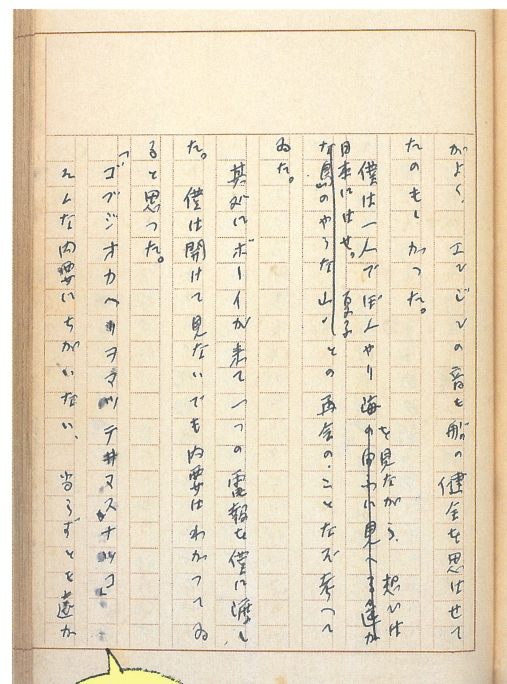 がよく、エンジンの音も船の健全を思はせて
たのもしかつた。
を見ながら、想ひは
僕は一人でぼんやり海の向ふに見へる遙か
日本にはせ。夏子
な島のやうな山、との再会のことなぞ考へて
ゐた。
其処にボーイが来て一つの電報を僕に渡し
た。僕は開けて見ないでも内要はわかつてゐ
ると思つた。
「ゴブジオカヘリヲマツテ井マスナツコ」
そんな内要にちがいない、当らずとも遠か